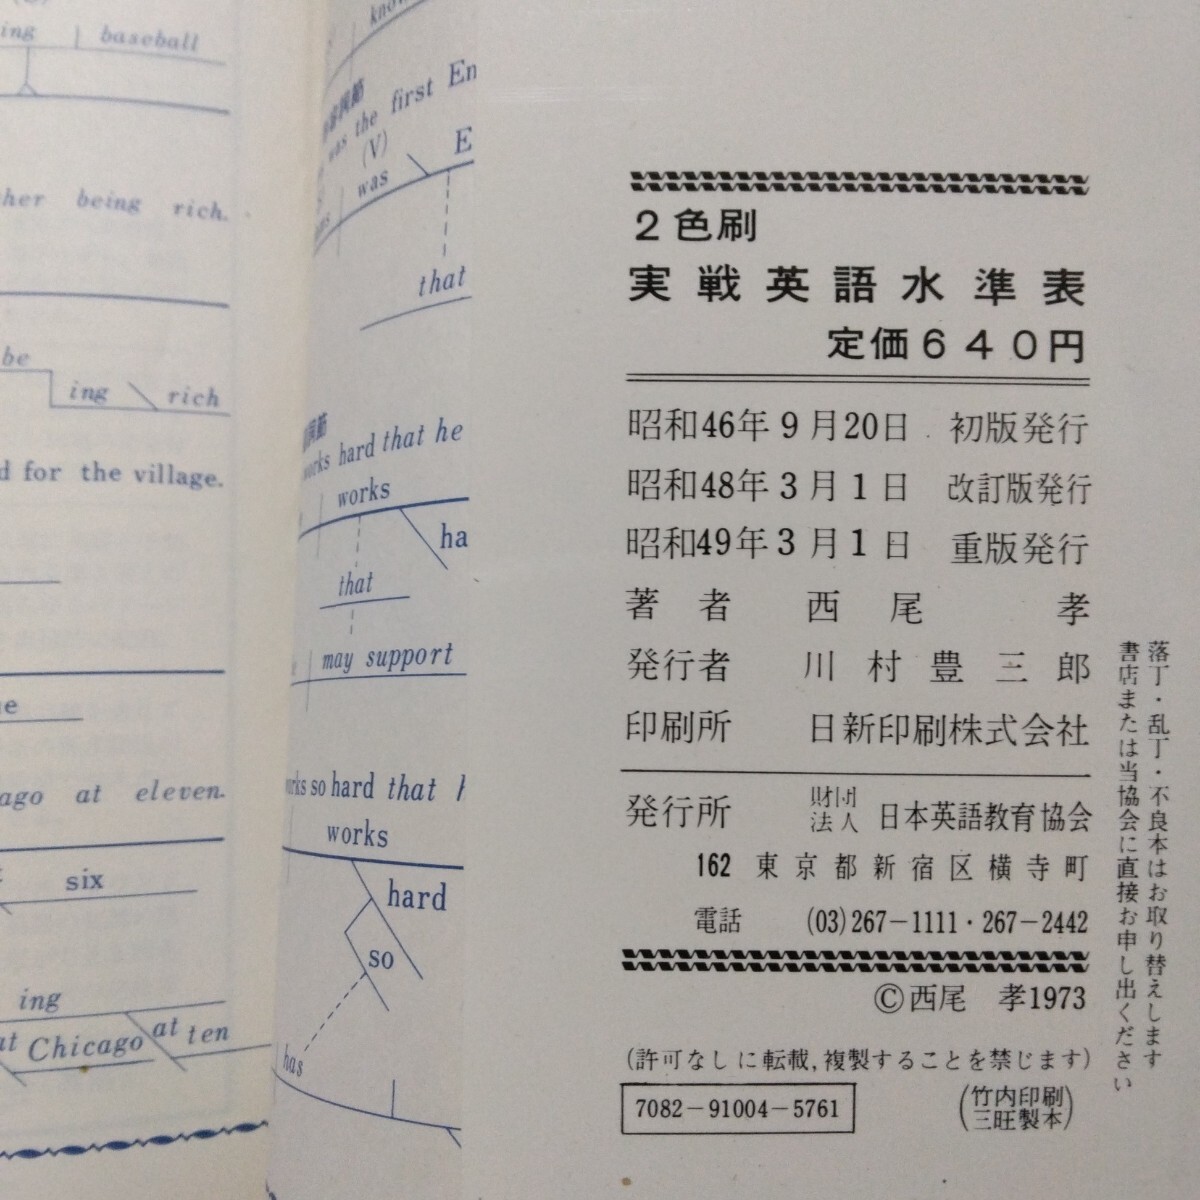 ing baseball
being rich.
be
ing rich
for the village.
at eleven.
six
ing
Chicago at ten
was the first
(V)
was
that
works hard that he
works
that
may support
so hard that
works
hard
so
has
2色刷
実戦英語水準表
定価640円
昭和46年9月20日 初版発行
昭和48年3月1日 改訂版発行
昭和49年3月1日 重版発行
著者 西尾 孝
発行者 川村豊三郎
印刷所 日新印刷株式会社
発行所 財団法人 日本英語教育協会
162 東京都新宿区横寺町
電話 (03)267-1111・267-2442
©西尾 孝1973
(許可なしに転載,複製することを禁じます)
7082-91004-5761
(竹内印刷
三旺製本)
落丁・乱丁・不良本はお取り替えします
書店または当協会に直接お申し出ください